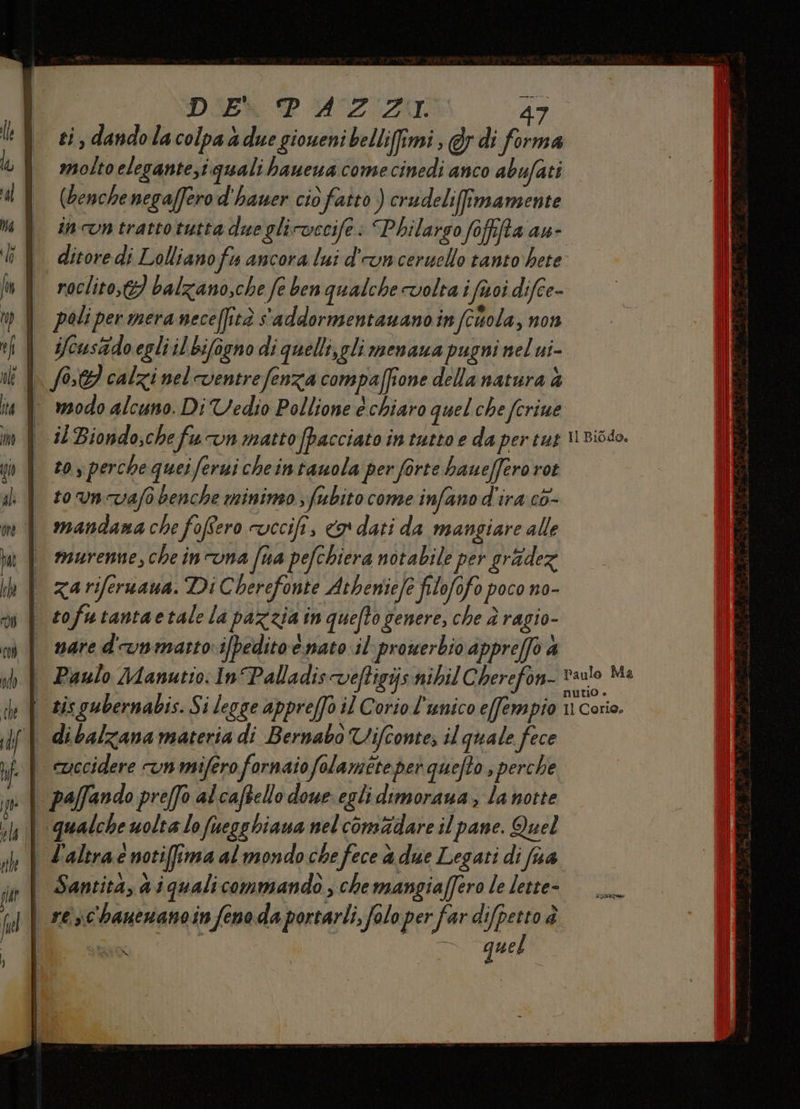 DE' PAZZI. 47
ti, dando la colpa à due gioueni bellißimi, & di forma
molto elegante, i quali haueua come cinedi anco abusati
(benche negassero d'hauer ciò fatto) crudelissimamente
in vn tratto tutta due gli vccise. Philargo sofista au-
ditore di Lolliano fu ancora lui d'vn ceruello tanto hete
roclito, & balzano, che se ben qualche volta i suoi disce-
poli per mera necessità s'addormentauano in scuola, non
iscusādo egli il bisogno di quelli, gli menaua pugni nel ui-
so, & calzi nel ventre senza compassione della natura à
modo alcuno. Di Vedio Pollione è chiaro quel che scriue
il Biondo, che fu vn matto spacciato in tutto e da per tut
Il Biōdo.
to, perche quei serui che in tauola per sorte hauessero rot
to vn vaso benche minimo, subito come insano d'ira cō-
mandaua che fossero vccisi, & dati da mangiare alle
murenne, che in vna sua peschiera notabile per grādez
za riseruaua. Di Cherefonte Atheniese filosofo poco no-
to fu tanta e tale la pazzia in questo genere, che à ragio-
nare d'vn matto ispedito è nato il prouerbio appresso à
Paulo Manutio. In Palladis vestigijs nihil Cherefon-
Paulo Ma
nutio.
tis gubernabis. Si legge appresso il Corio l'unico essempio
Il Corio.
di balzana materia di Bernabò Visconte, il quale fece
vccidere vn misero fornaio solamēte per questo, perche
passando presso al castello doue egli dimoraua, la notte
qualche uolta lo suegghiaua nel comādare il pane. Quel
l'altra è notissima al mondo che fece à due Legati di sua
Santità, à i quali commandò, che mangiassero le lette-
re, c'haueuano in seno da portarli, solo per far dispetto à
quel